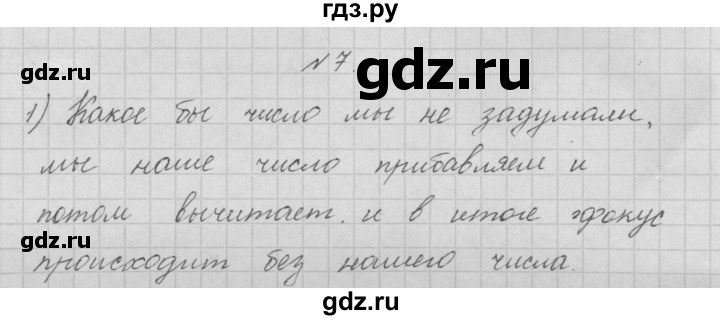 гдз.ру
gdz.ru
№ 7
gdz.ru
1) Какое бы число мы не задумали,
мы наше число прибавляем и
gdz.ru
потом вычитает. и в итоге фокус
gdz.ru
происходит без нашего числа.
gdz.ru